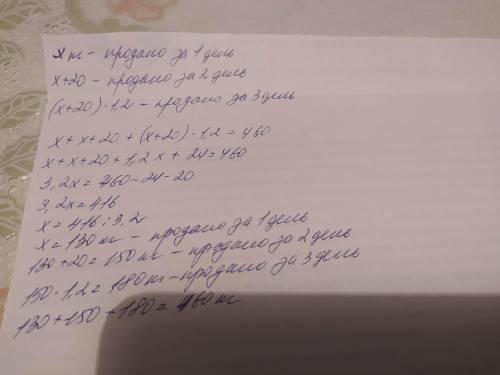 x кг – продано за 1 день
x+20 – продано за 2 день
(x+20)·1,2 – продано за 3 день
x + x+20 + (x+20)·1,2 = 460
x + x+20 + 1,2x + 24 = 460
3,2x = 460-24-20
3,2x = 416
x = 416 : 3,2
x = 130 кг – продано за 1 день
130+20 = 150 кг – продано за 2 день
150·1,2 = 180 кг – продано за 3 день
130+150+180 = 460 кг